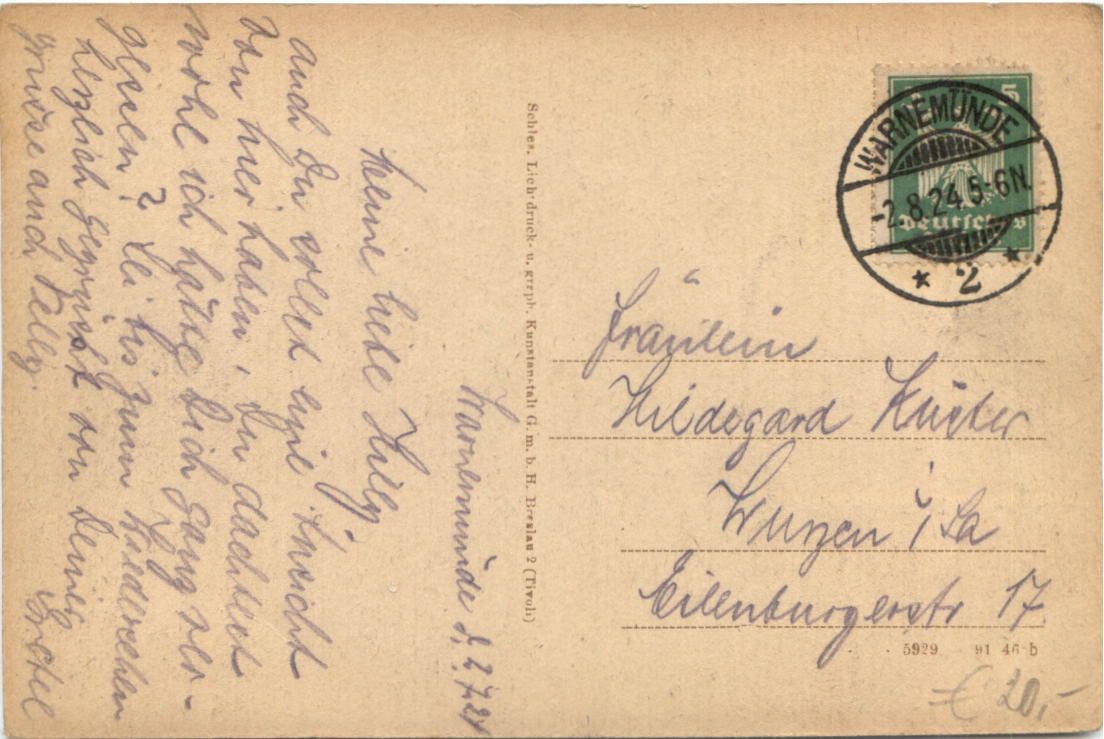 Warnemünde d. 2.7.24
Meine liebe Hilly
auch Du sollst eine Ansicht
von hier haben, Du dachtest
wohl ich hätte Dich ganz ver-
gessen? Sei bis zum Wiedersehen
herzlich gegrüsst von Deiner
grüsse auch Nelly.
Schles. Lichtdruck- u. graph. Kunstanstalt G. m. b. H. Breslau 2 (Tivoli)
5
WARNEMÜNDE
-2.8.24.5-6N.
Deutsches
* 2 *
Fräulein
Hildegard Küster
Wurzen i/Sa
Eilenburgerstr 17.
5929 91 46 b
€ 20,-